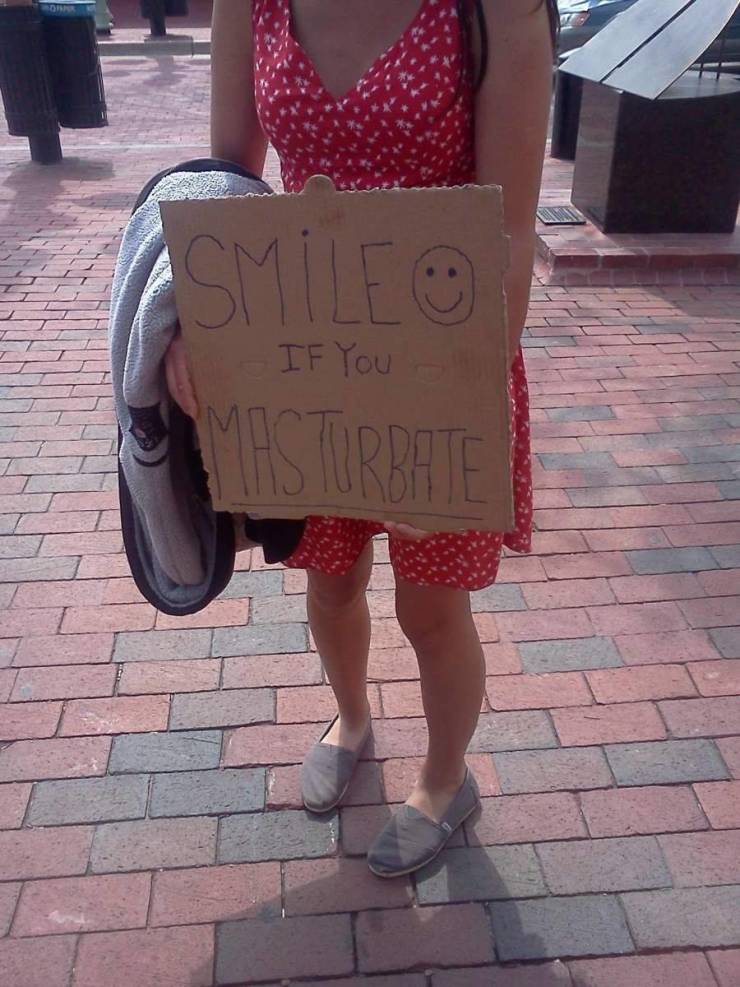 SMiLE
IF YOU
MASTURBATE